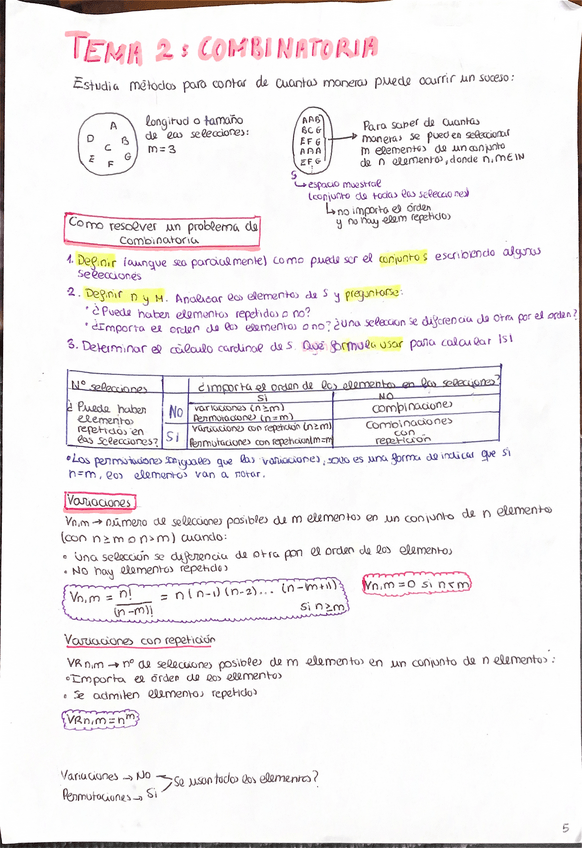 TEMA 2: COMBINATORIA
Estudia métodos para contar de cuantas maneras puede ocurrir un suceso:
A
D
B
C
E
F
G
longitud o tamaño
de las selecciones:
m=3
AAB
BCG
EFG
AAA
EFG
Para saber de cuantas
maneras se pueden seleccionar
m elementos de un conjunto
de n elementos, donde n,m∈IN
S
↳espacio muestral
(conjunto de todas las selecciones)
↳no importa el órden
y no hay elem repetidos
Como resolver un problema de
combinatoria
1. Definir (aunque sea parcialmente) como puede ser el conjunto s escribiendo algunas
selecciones
2. Definir n y M. Analizar los elementos de S y preguntarse:
• ¿Puede haben elementos repetidos o no?
• ¿Importa el orden de los elementos o no? ¿Una seleccion se diferencia de otra por el orden?
3. Determinar el cálculo cardinal de S. Qué formula usar para calcular |S|
Nº selecciones
¿importa el orden de los elementos en las selecciones?
SI
NO
¿Puede haber
elementos
repetidos en
las selecciones?
NO
variaciones (n≥m)
Permutaciones (n=m)
combinaciones
SI
Variaciones con repetición (n≥m)
Permutaciones con repeticion(m=m
Combinaciones
con
repetición
•Las permutaciones son iguales que las variaciones, solo es una forma de indicar que si
n=m, los elementos van a rotar.
Variaciones
Vn,m → número de selecciones posibles de m elementos en un conjunto de n elementos
(con n≥m o n>m) cuando:
• Una selección se diferencia de otra por el orden de los elementos
• No hay elementos repetidos
Vn,m = n!/(n-m)! = n(n-1)(n-2)... (n-m+1)
si n≥m
Vn,m=0 si n<m
Variaciones con repetición
VRn,m → nº de selecciones posibles de m elementos en un conjunto de n elementos:
•Importa el órden de los elementos
• Se admiten elementos repetidos
VRn,m=n^m
Variaciones → No
Permutaciones → Si
Se usan todos los elementos?
5